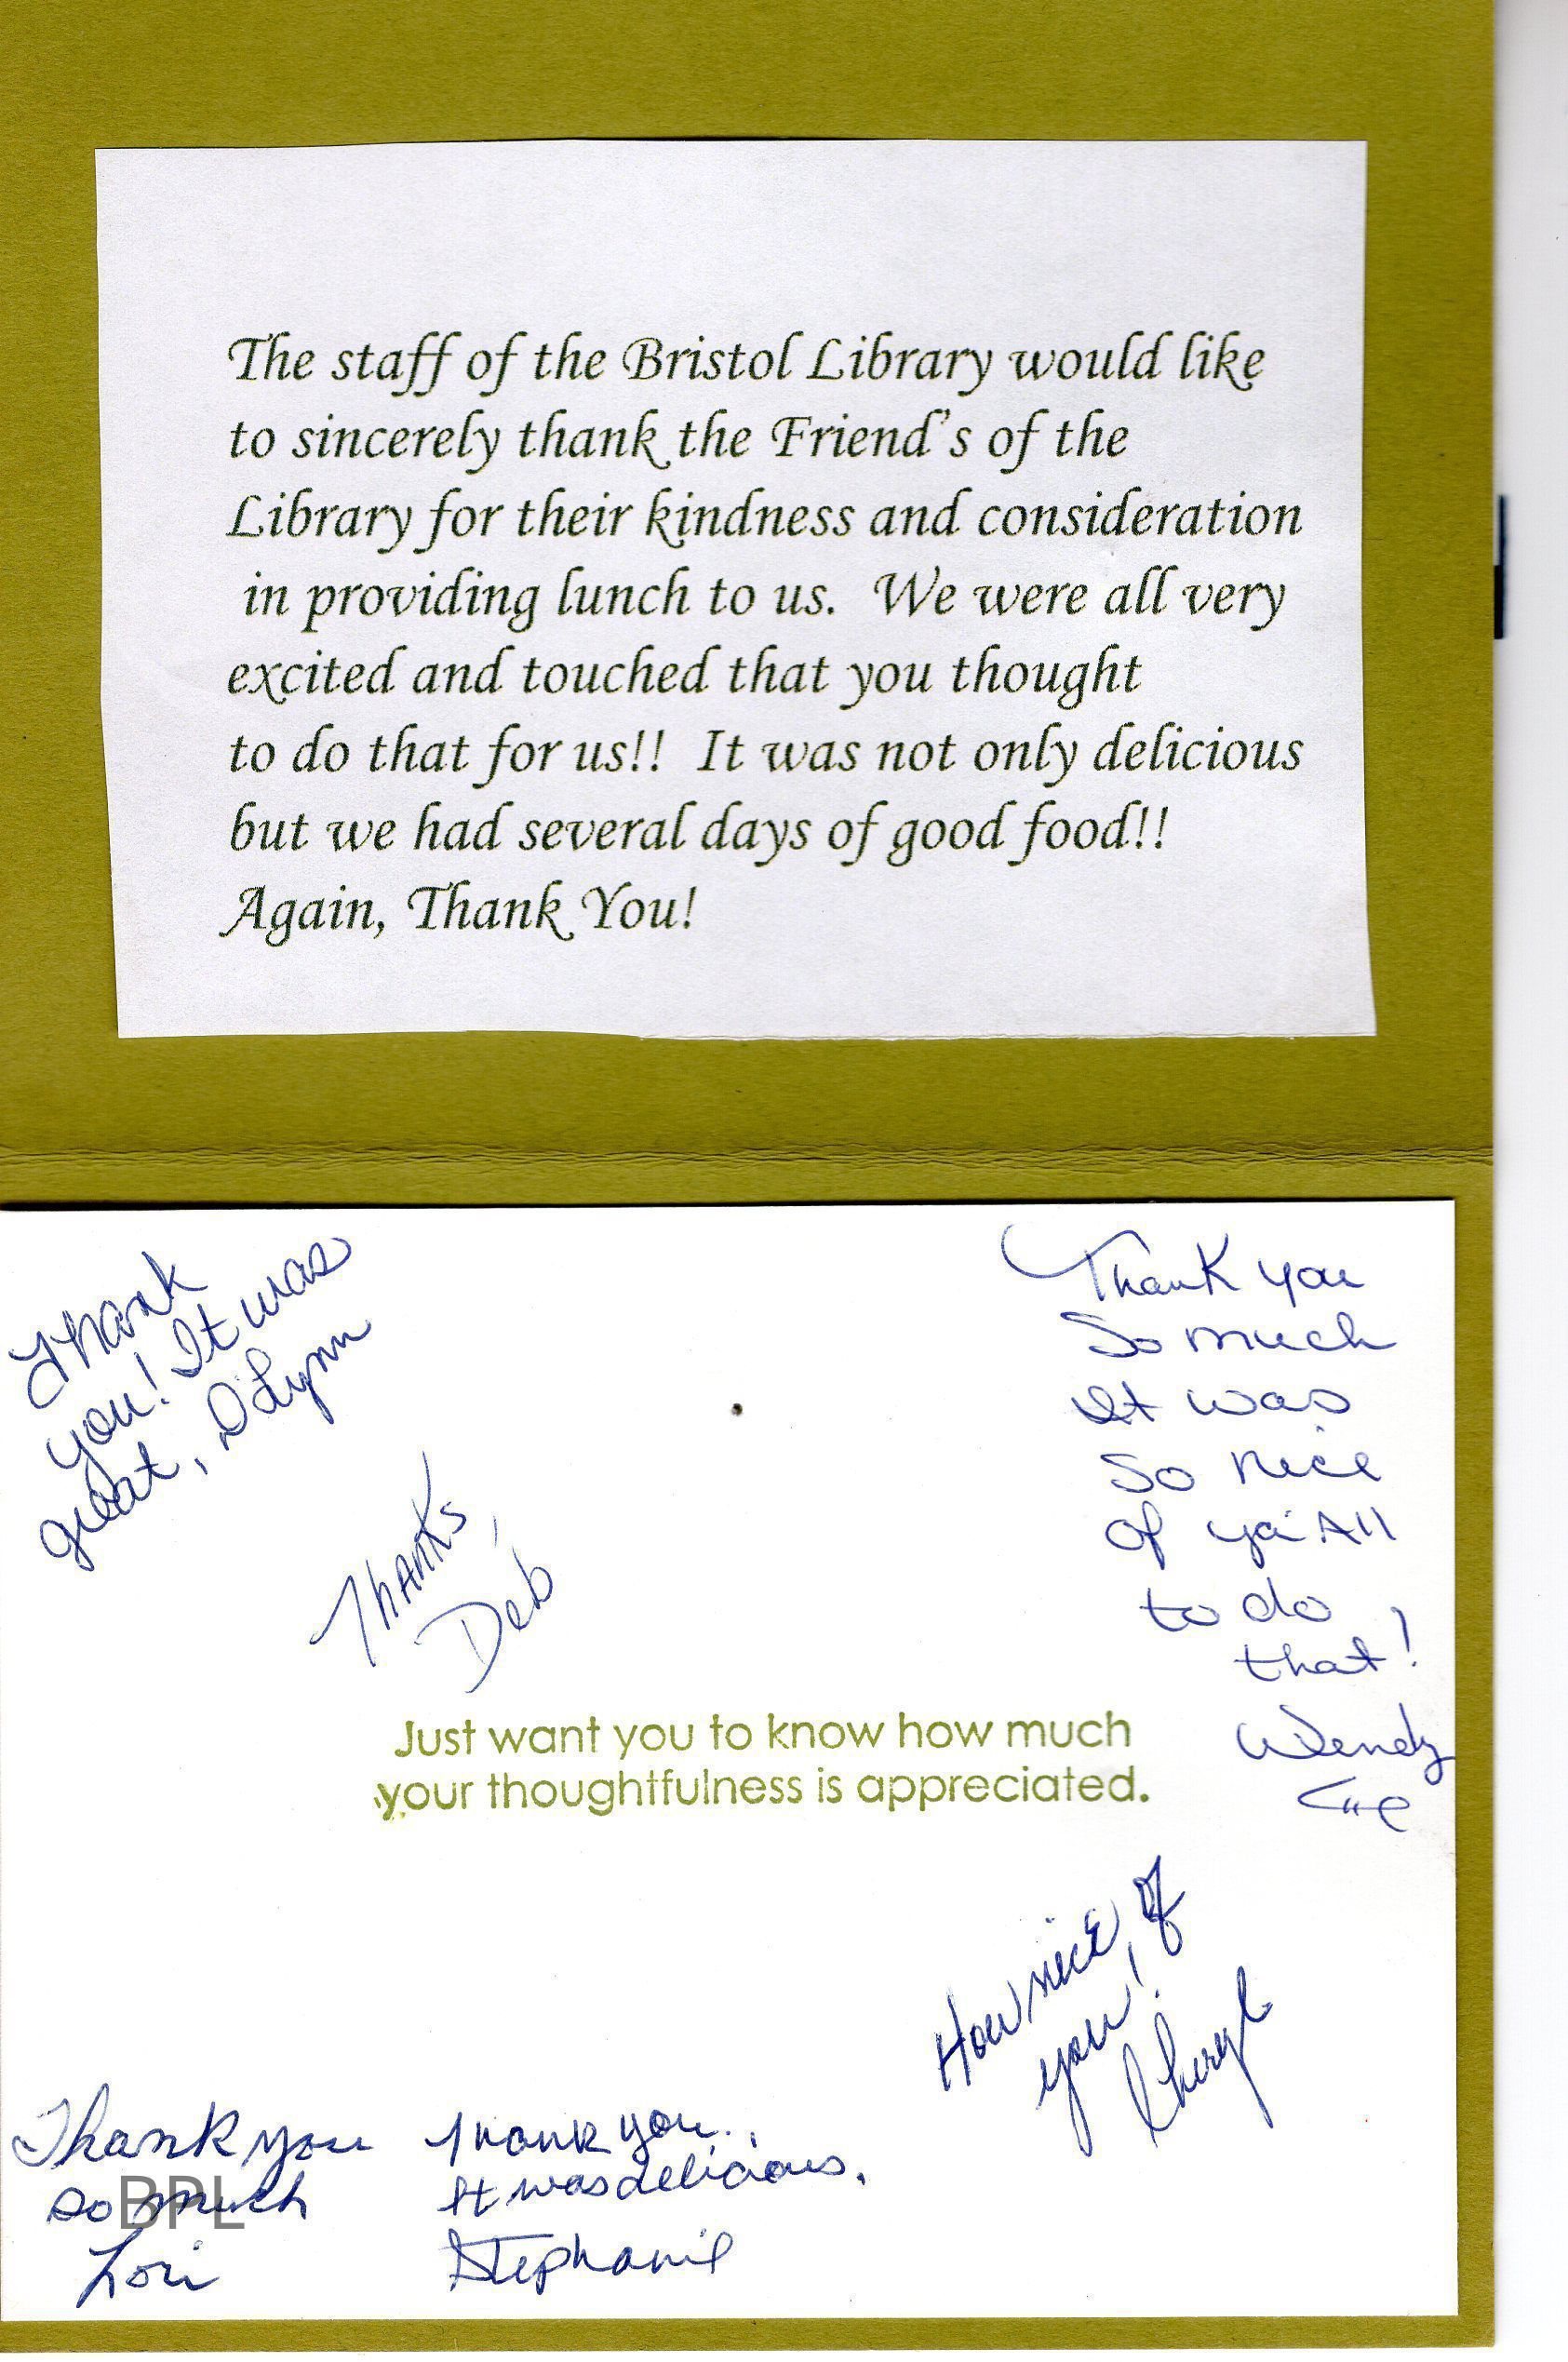 The staff of the Bristol Library would like
to sincerely thank the Friend's of the
Library for their kindness and consideration
in providing lunch to us.  We were all very
excited and touched that you thought
to do that for us!!  It was not only delicious
but we had several days of good food!!
Again, Thank You!
Thank
you! It was
great, DLynn
Thanks,
Deb
Thank you
So much
It was
So nice
of ya'All
to do
that!
Wendy
Just want you to know how much
your thoughtfulness is appreciated.
How nice of
you!
Cheryl
Thank you
so much
Lori
Thank you..
It was delicious.
Stephanie
BPL